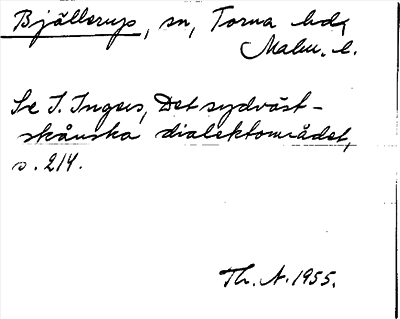 Bjällerup, sn, Torna hd,
Malm. l.
Se I. Ingers, Det sydväst-
skånska dialektområdet,
s. 214.
Th. A. 1955.